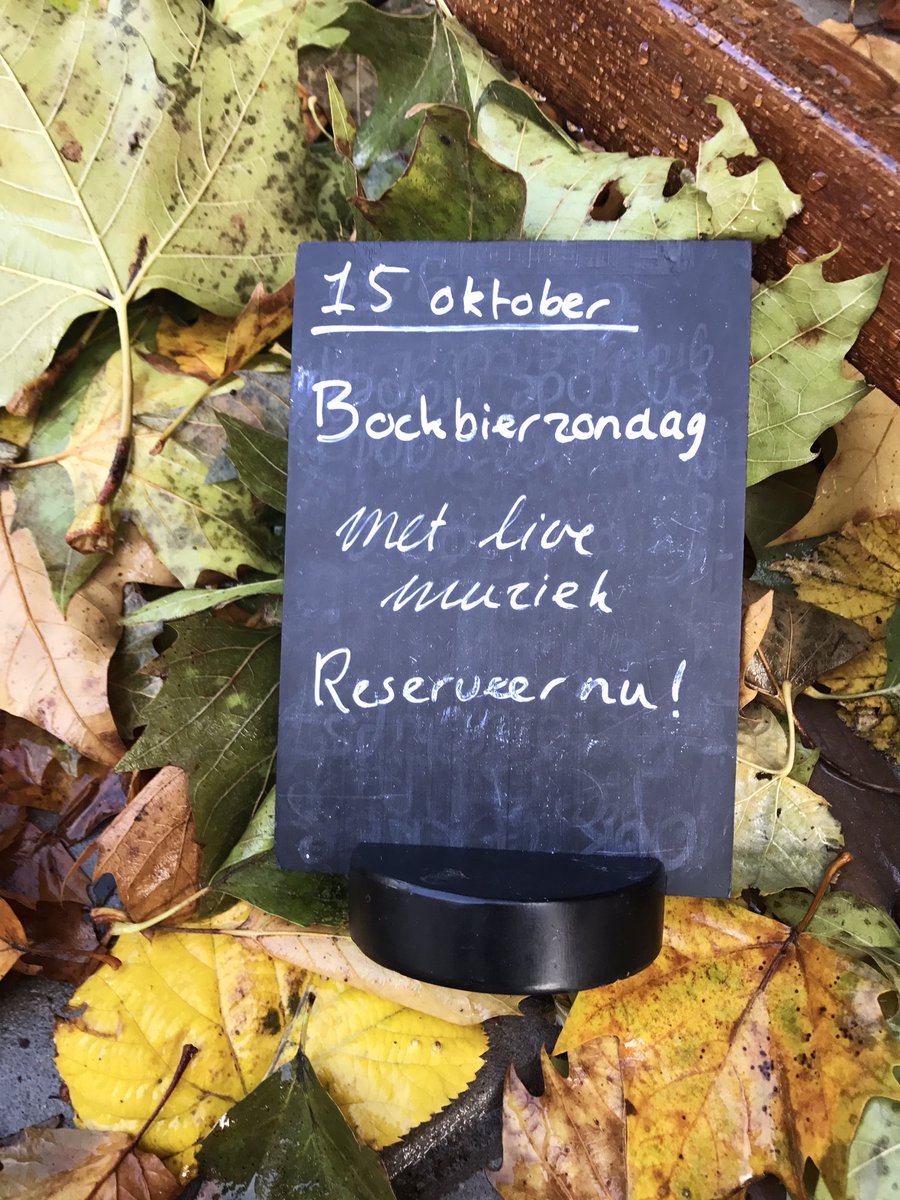 15 oktober
Bockbierzondag
met live
muziek
Reserveer nu!